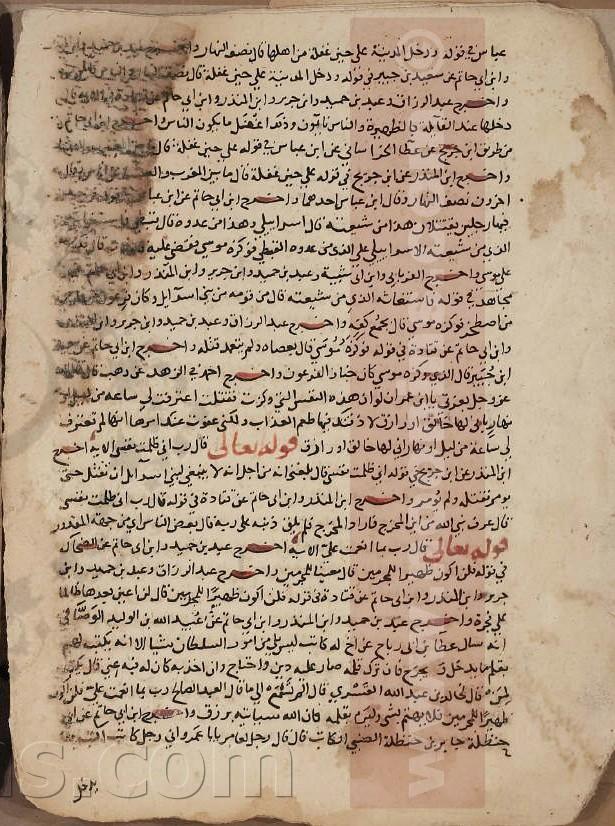 عباس في قوله ودخل المدينة على حين غفلة من اهلها قال نصف النهار
وابن ابي حاتم عن سعيد بن جبير في قوله ودخل المدينة على حين غفلة قال نصف
واخرج عبد الرزاق وعبد بن حميد وابن جرير وابن المنذر وابن ابي حاتم عن
دخلها عند القايلة بالظهيرة والناس نايمون وذلك اغفل ما يكون الناس
من طريق ابن جريج عن عطا الخراساني عن ابن عباس في قوله على حين غفلة قال
واخرج ابن المنذر عن ابن جريج في قوله على حين غفلة قال ما بين المغرب والعشا
اخرون نصف النهار وقال ابن عباس احدهما واخرج ابن ابي حاتم عن ابن
فيها رجلين يقتتلان هذا من شيعته قال اسراييلي وهذا من عدوه قال
الذي من شيعته الاسراييلي على الذي من عدوه القبطي فوكزه موسى فقضى عليه
على موسى واخرج الفريابي وابن ابي شيبة وعبد بن حميد وابن جرير وابن المنذر
مجاهد في قوله فاستغاثه الذي من شيعته قال من قومه من بني اسرايل وكان فرعون
من اصطخر فوكزه موسى قال بجمع كفه واخرج عبد الرزاق وعبد بن حميد وابن جرير
وابن ابي حاتم عن قتادة في قوله فوكزه موسى قال بعصاه ولم يتعمد قتله واخرج ابن ابي حاتم عن
ابن جبير قال الذي وكزه موسى كان خبازا لفرعون واخرج احمد في الزهد عن وهب قال
عز وجل بعزتي يا ابن عمران لو ان هذه النفس التي وكزت فقتلت اعترفت لي ساعة من ليل
نهار باني لها خالق او رازق لاذقتك فيها طعم العذاب ولكني عفوت عنك امرها انها لم تعترف
لي ساعة من ليل او نهار اني لها خالق او رازق قوله تعالى قال رب اني ظلمت نفسي الاية اخرج
ابن المنذر عن ابن جريج في قوله اني ظلمت نفسي قال بلغني انه من اجل انه لا ينبغي لنبي ان يقتل حتى
يومر فقتله ولم يومر واخرج ابن المنذر وابن ابي حاتم عن قتادة في قوله قال رب اني ظلمت نفسي
قال عرف نبي الله من اين المخرج فاراد المخرج فلم يلق ذنبه على ربه قال بعض الناس اي من جهة المقدور
قوله تعالى قال رب بما انعمت علي الاية اخرج عبد بن حميد وابن ابي حاتم عن الضحاك
في قوله فلن اكون ظهيرا للمجرمين قال معينا للمجرمين واخرج عبد الرزاق وعبد بن حميد وابن
جرير وابن المنذر وابن ابي حاتم عن قتادة في قوله فلن اكون ظهيرا للمجرمين قال لن اعين بعدها ظالما
على فجره واخرج عبد بن حميد وابن المنذر وابن ابي حاتم عن عبيد الله بن الوليد الوصافي
انه سال عطا بن ابي رباح عن اخ له كاتب ليس يلي من امور السلطان شيا الا انه يكتب لهم
بقلم ما يدخل وما يخرج فان ترك قلمه صار عليه دين واحتاج وان اخذ به كان له فيه غنى قال
لمن قال لخالد بن عبد الله القسري قال الم تسمع الى ما قال العبد الصالح رب بما انعمت علي فلن اكون
ظهيرا للمجرمين فلا يهتم بشي وليرم بقلمه فان الله سياتيه برزق واخرج ابن ابي حاتم عن ابي
حنظلة جابر بن حنظلة الضبي الكاتب قال قال رجل لعامر يابا عمرو اني رجل كاتب
يدخل